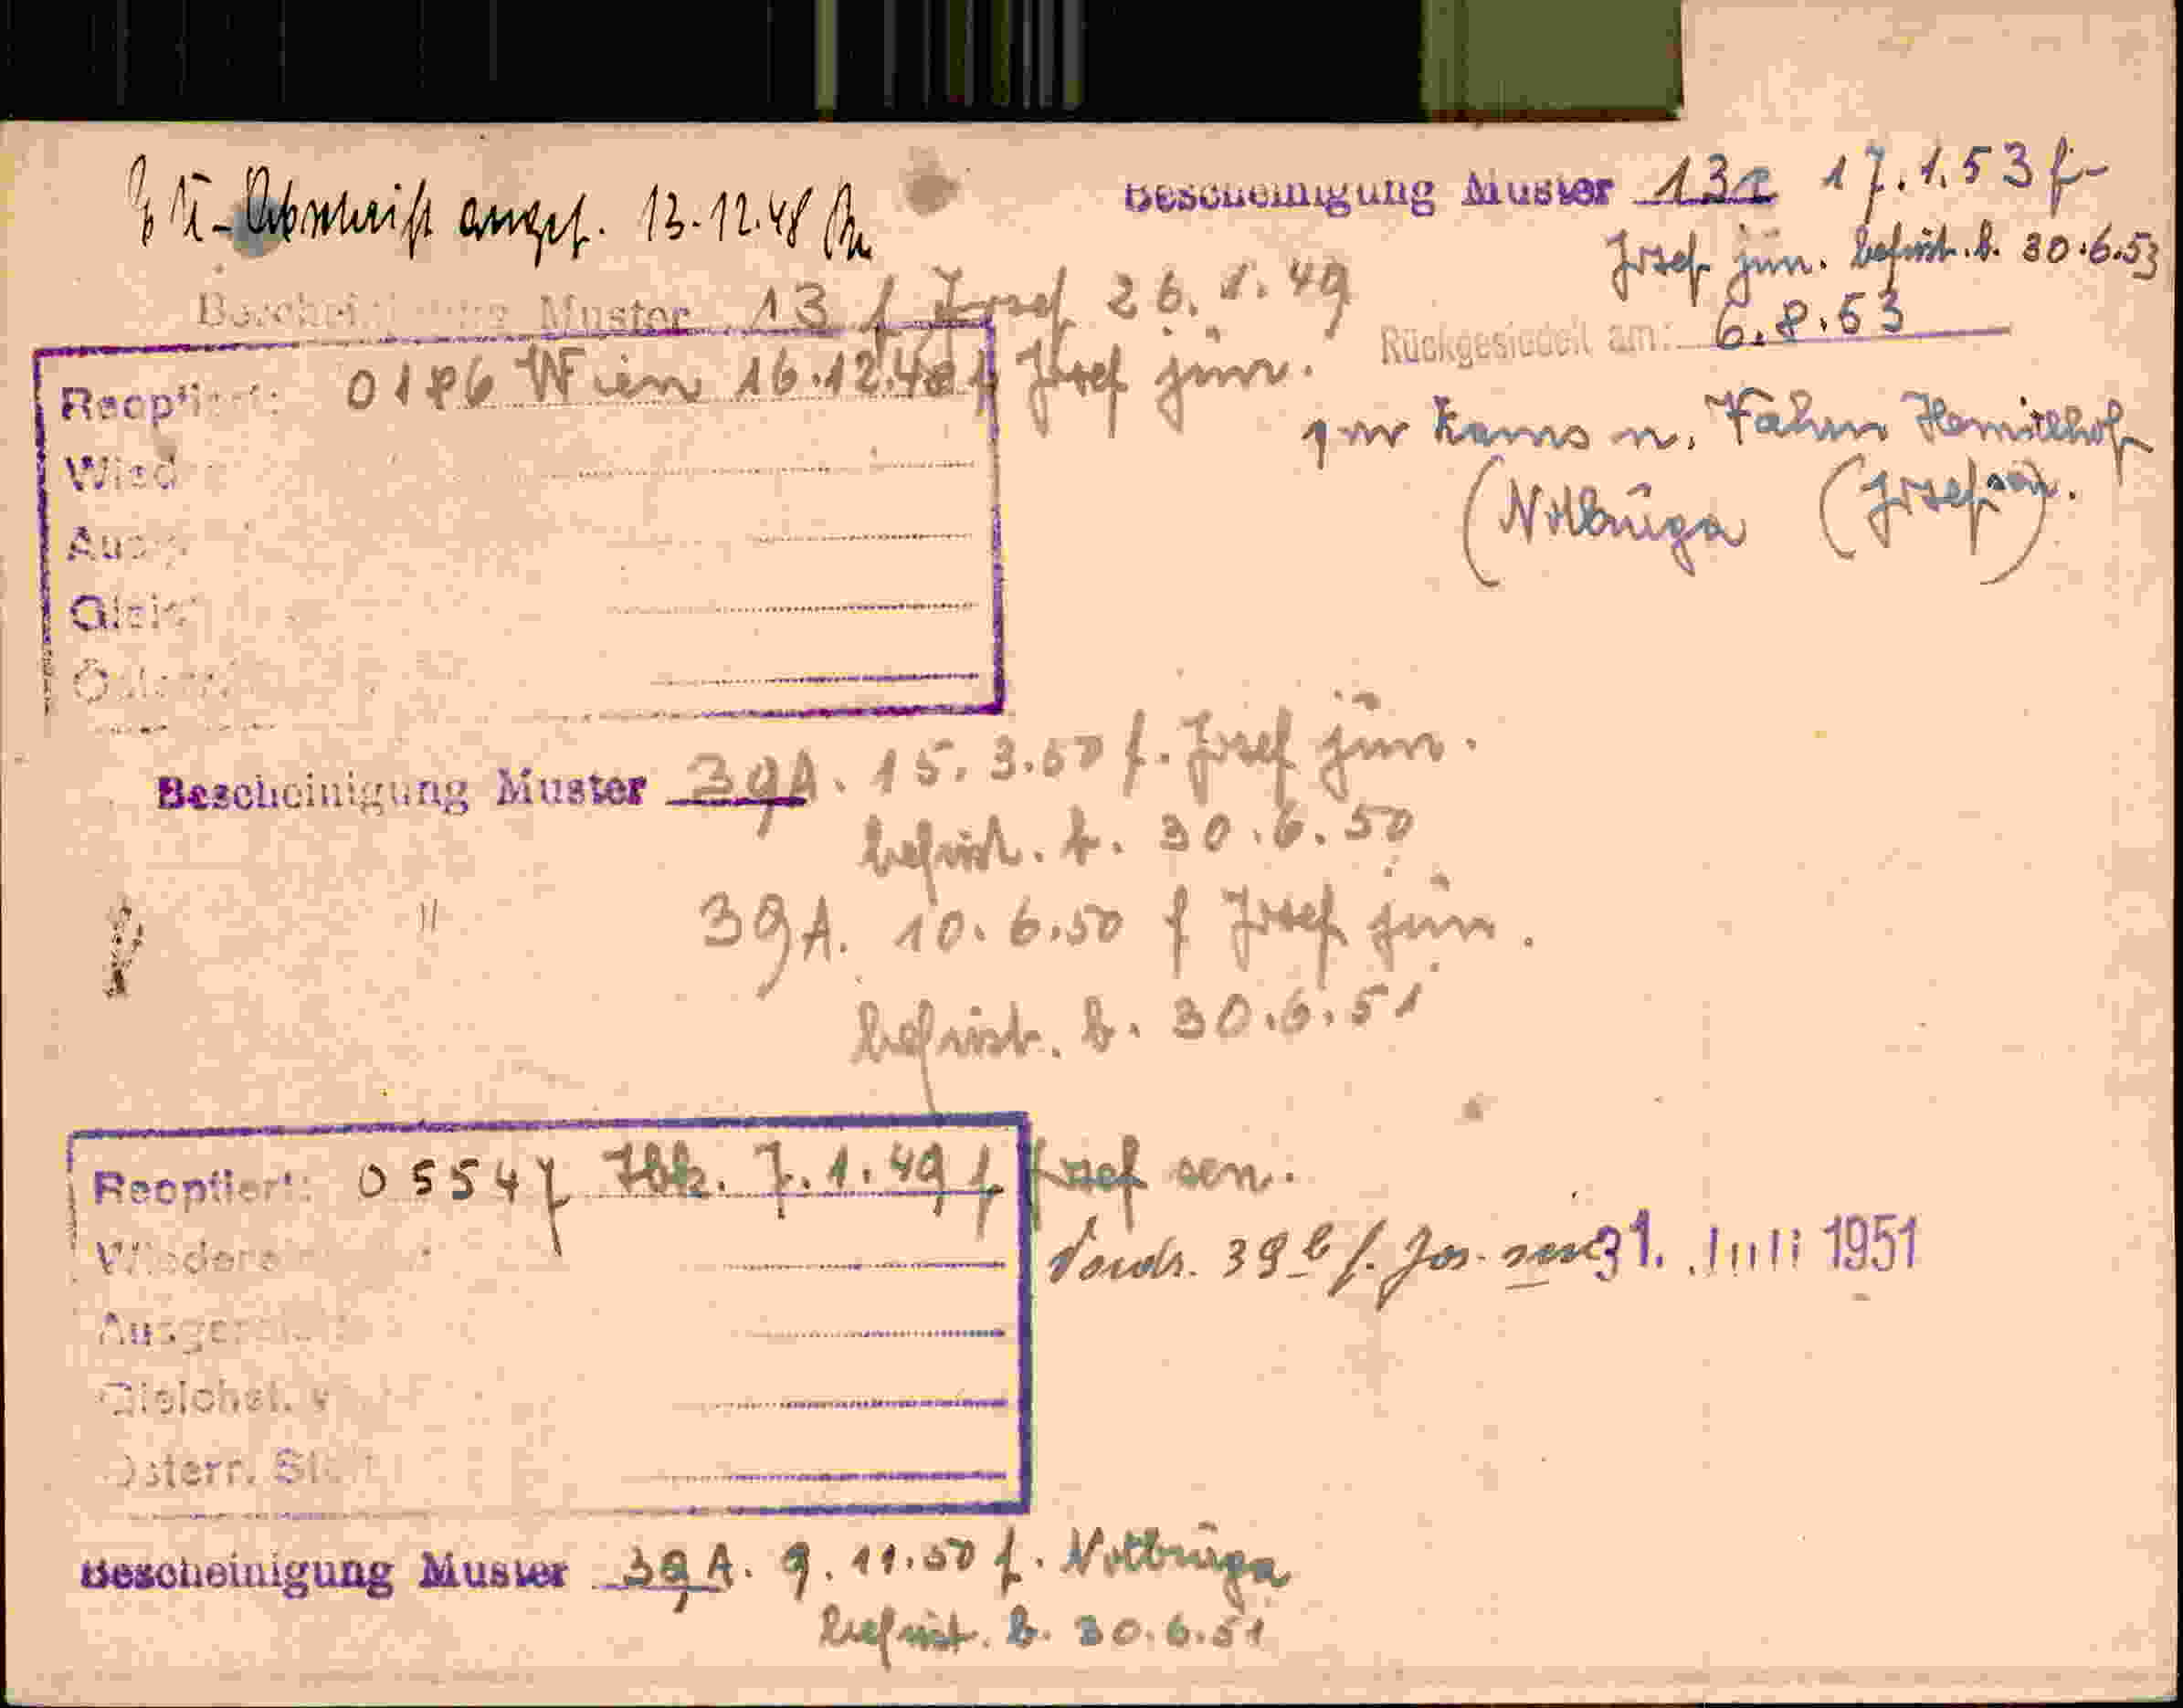 Abschrift angef. 13.12.48
Bescheinigung Muster 13a 17.1.53 f
Josef jun. befrist. b. 30.6.53
Bescheinigung Muster 13 f Josef 26.1.49
Rückgesiedelt am: 6.8.53
Reoptiert: 0186 Wien 16.12.48 f Josef jun.
Wied
Ausg
Gleic
Österr.
(Notburga (Josef sen.)
Bescheinigung Muster 39A. 15.3.50 f. Josef jun.
befrist. b. 30.6.50
" 39A. 10.6.50 f Josef jun.
befrist. b. 30.6.51
Reoptiert: 05547 Ibk. 7.1.49 f Josef sen.
Wiedere
39b f. Jos. sen 31. Juli 1951
Ausge
Gleichst. v
Österr. St
Bescheinigung Muster 39A. 9.11.50 f. Notburga
befrist. b. 30.6.51